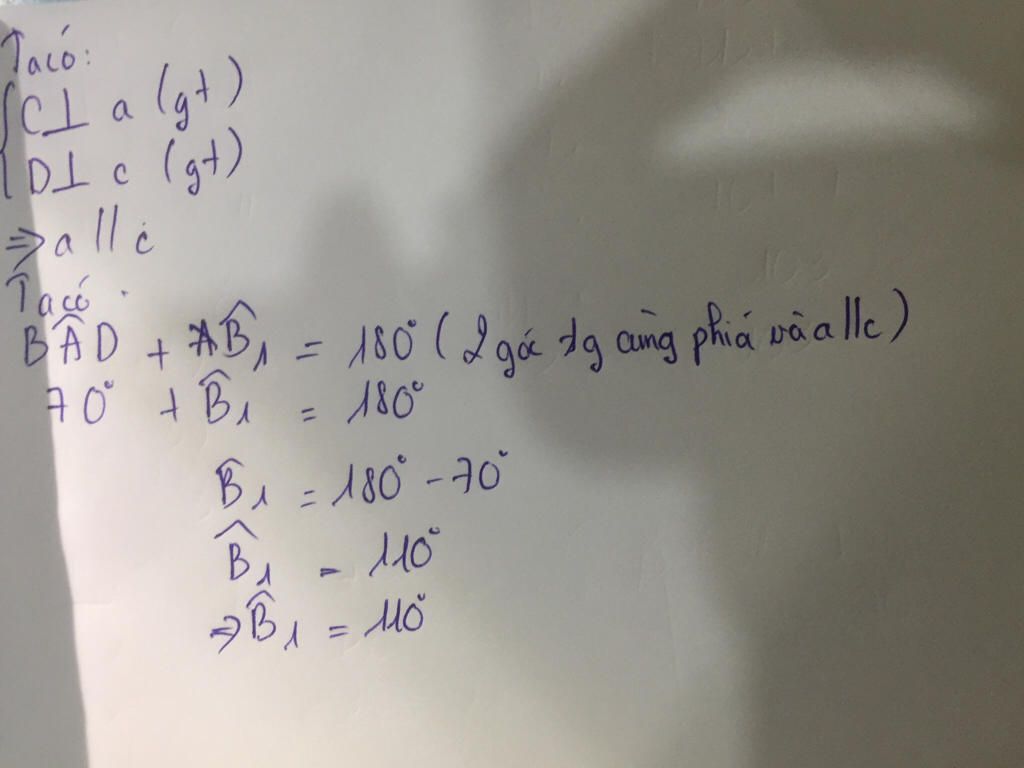 Ta có:
{ C⊥ a (gt)
D⊥ c (gt)
⇒ a // c
Ta có:
BÂD + AB̂₁ = 180° ( 2 góc tg cùng phiá và a // c )
70° + B̂₁ = 180°
B̂₁ = 180° - 70°
B̂₁ = 110°
⇒ B̂₁ = 110°